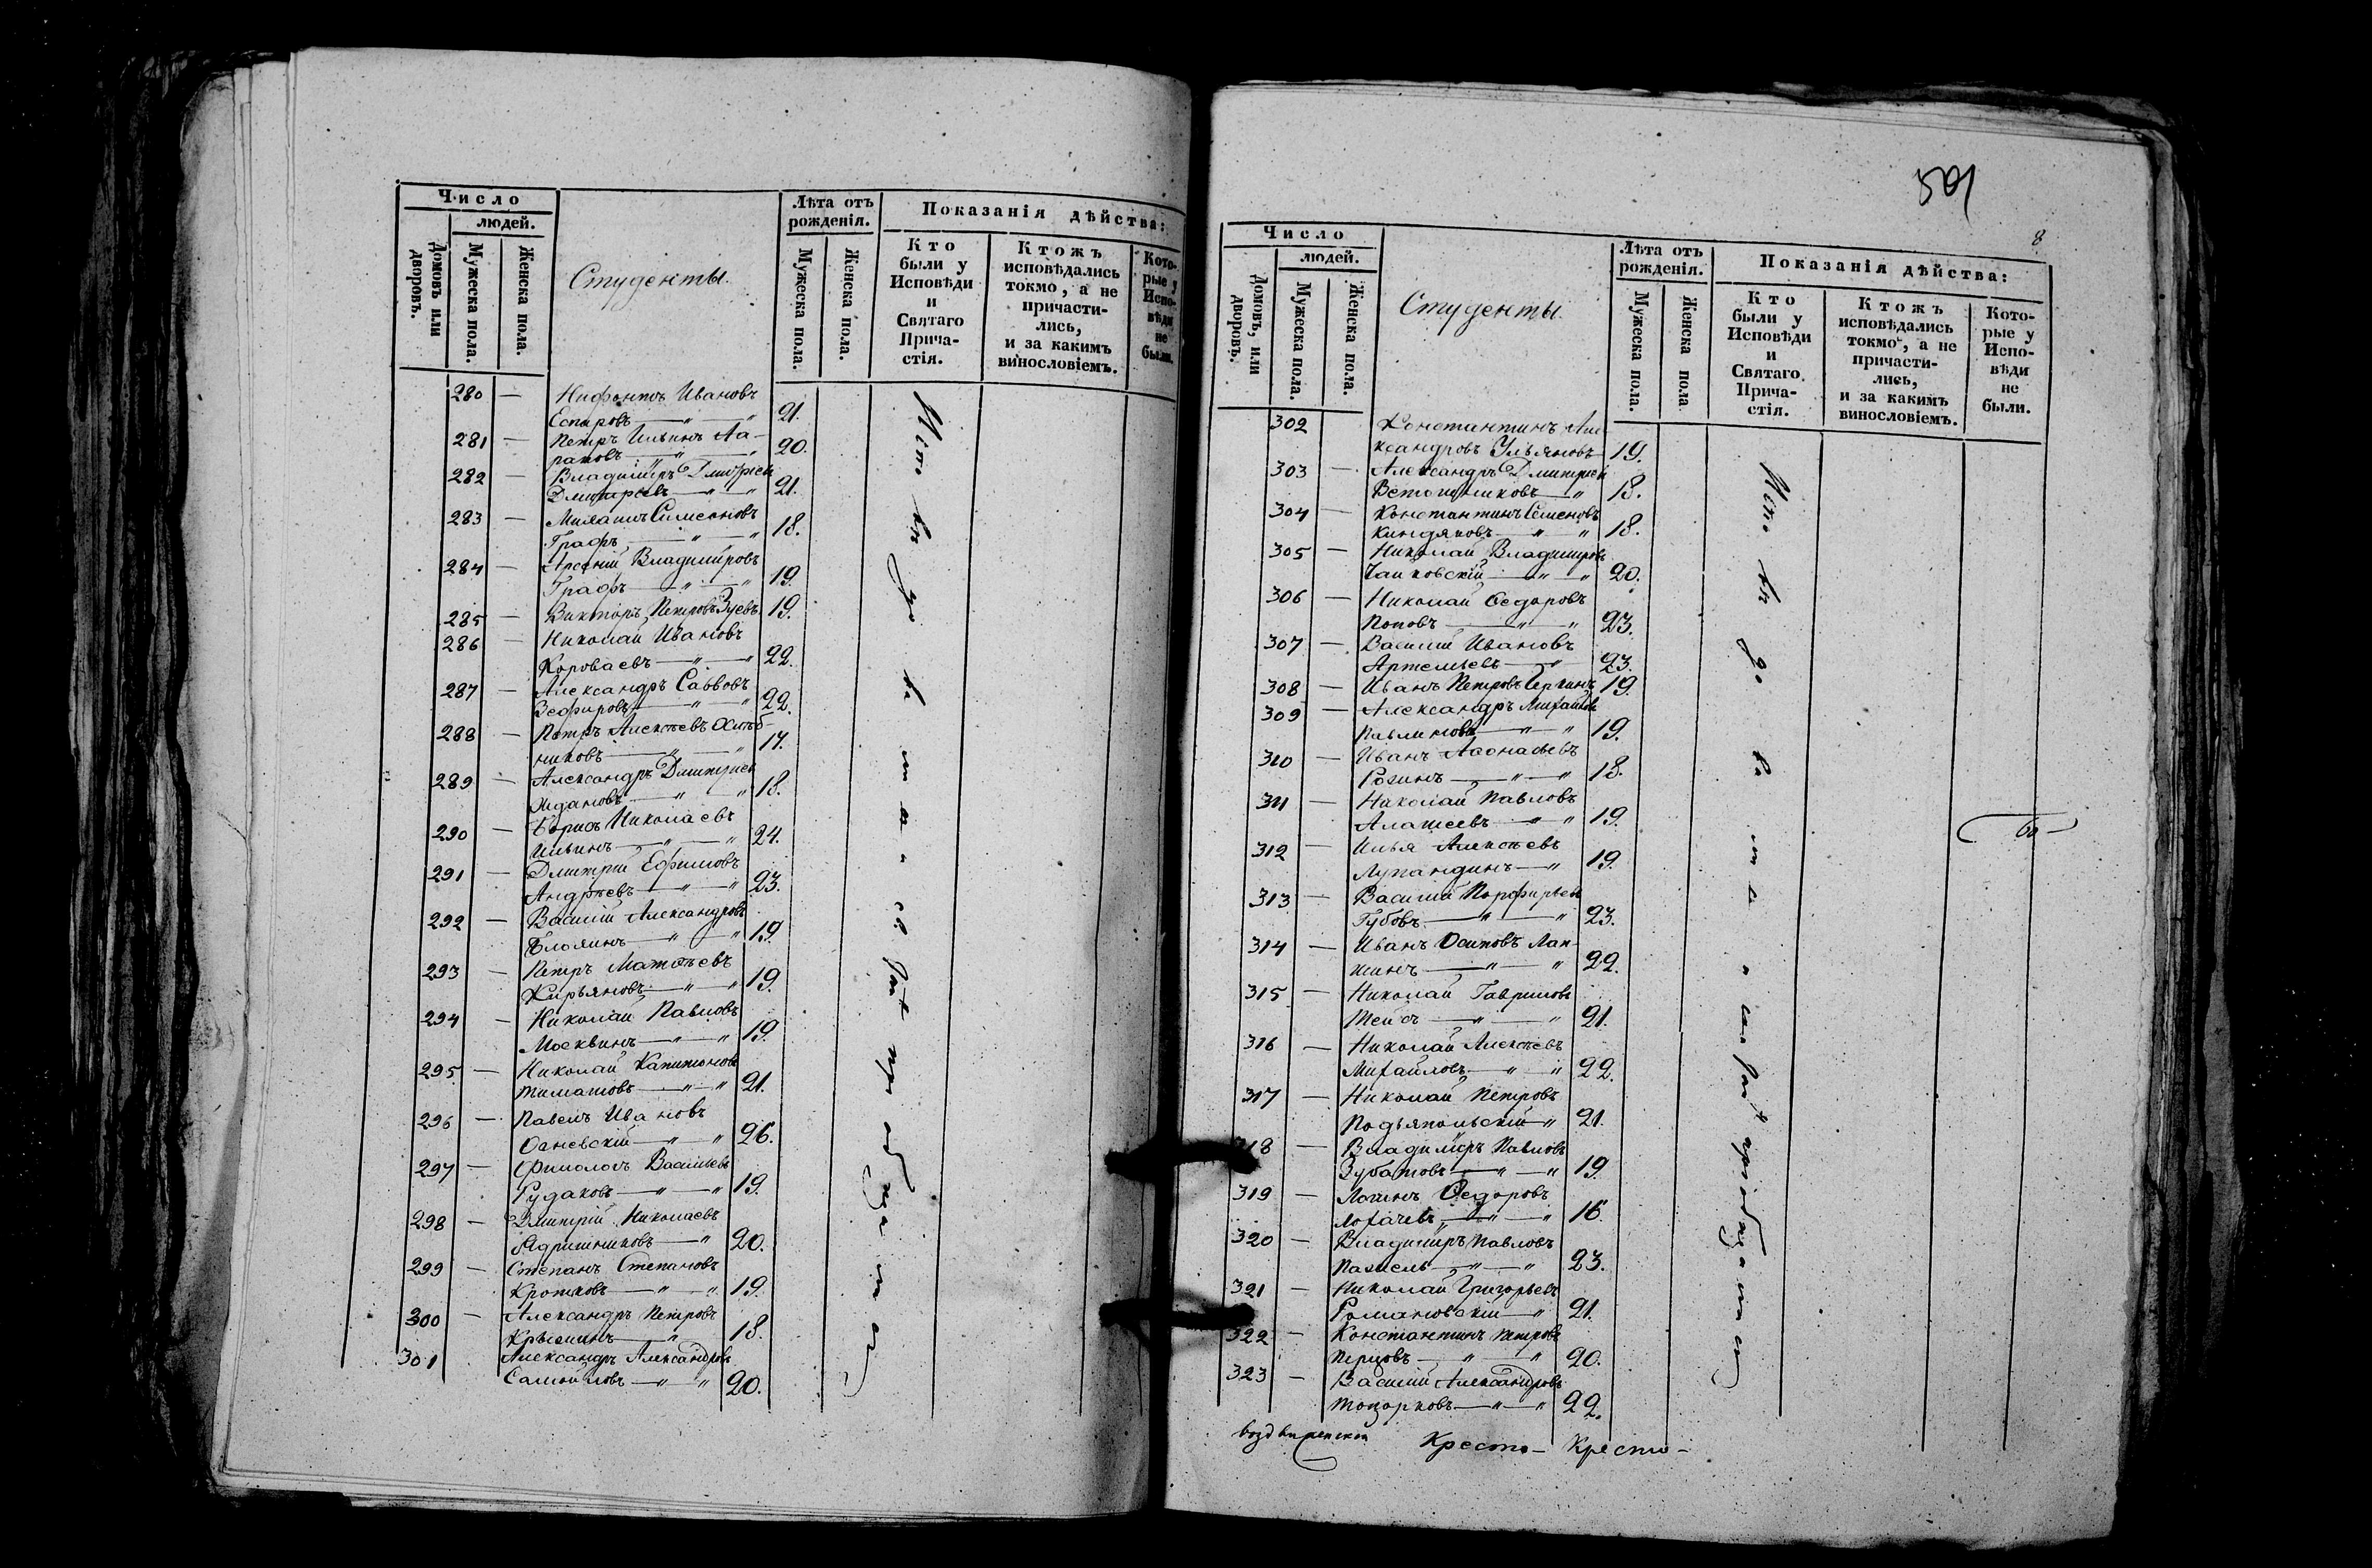 Число
людей.
Домовъ или дворовъ.
Мужеска пола.
Женска пола.
Студенты.
Лѣта отъ рожденія.
Мужеска пола.
Женска пола.
Показанія дѣйства:
Кто были у Исповѣди и Святаго Прича-стія.
Ктожъ исповѣдались токмо, а не причасти-лись, и за какимъ винословіемъ.
Кото-рые у Испо-вѣди не были.
280 — Нифонтъ Ивановъ
21.
281 — Петръ Ильинъ Ла-
ратовъ — 20.
282 — Владиміръ Дмитріев
Дмитріевъ — " — " 21.
283 — Михаилъ Симеоновъ
Графъ — " — " 18.
284 — Арсеній Владиміровъ
Графъ — " — " 19.
285 — Викторъ Петровъ Зуевъ 19.
286 — Николай Ивановъ
Короваевъ — " — " 22.
287 — Александръ Саввовъ
Зефировъ — " — " 22.
288 — Петръ Алексѣевъ Хлѣб-
никовъ — " — " 17.
289 — Александръ Дмитріев
Ждановъ — " — " 18.
290 — Борисъ Николаевъ
Ильинъ — " — " 24.
291 — Дмитрій Ефимовъ
Андреевъ — " — " 23.
292 — Василій Александровъ
— " — " 19.
293 — Петръ Матвѣевъ
Кирьяновъ — " — " 19.
294 — Николай Павловъ
Москвинъ — " — " 19.
295 — Николай Капитоновъ
Тиматовъ — " — " 21.
296 — Павелъ Ивановъ
— " — " 26.
297 — Васильевъ
Рудаковъ — " — " 19.
298 — Дмитрій Николаевъ
Ядринниковъ — " 20.
299 — Степанъ Степановъ
Кротковъ — " — " 19.
300 — Александръ Петровъ
— " 18.
301 Александръ Александровъ
Самойловъ — " — " 20.
501
8
Число
людей.
Домовъ, или дворовъ.
Мужеска пола.
Женска пола.
Студенты.
Лѣта отъ рожденія.
Мужеска пола.
Женска пола
Показанія дѣйства:
Кто были у Исповѣди и Святаго Прича-стія.
Ктожъ исповѣдались токмо, а не причасти-лись, и за какимъ винословіемъ.
Кото-рые у Испо-вѣди не были.
302 Константинъ Але-
ксандровъ Ульяновъ 19.
303 — Александръ Дмитріев
Ветошниковъ — " 18.
304 — Константинъ Семеновъ
Киндяковъ — " — " 18.
305 — Николай Владиміров
Чайковскій — " — " 20.
306 — Николай Ѳедоровъ
Поповъ — " — " 23.
307 — Василій Ивановъ
Артемьевъ — " 23.
308 — Иванъ Петровъ 19.
309 — Александръ Михайлов
Павлиновъ — " — " 19.
310 — Иванъ Аѳонасьевъ
Рогинъ — " — " 18.
311 — Николай Павловъ
Алашеевъ — " — " 19.
312 — Илья Алексѣевъ
Лупандинъ — " 19.
313 — Василій Порфирьев
Губовъ — " — " 23.
314 — Иванъ Осиповъ Лап-
шинъ — " — " 22.
315 — Николай Гавриловъ
— " — " 21.
316 — Николай Алексѣевъ
Михайловъ — " — " 22.
317 — Николай Петровъ
Подъяпольскій — " 21.
318 — Владиміръ Павловъ
Зубатовъ — " — " 19.
319 — Логинъ Ѳедоровъ
Лохачевъ — " — " 16.
320 — Владиміръ Павловъ
— " — " 23.
321 — Николай Григорьевъ
Романовскій — " 21.
322 — Константинъ Петровъ
Перцовъ — " — " 20.
323 — Василій Александровъ
Топорковъ — " — " 22.
Воздвиженской Кресто- Кресто-